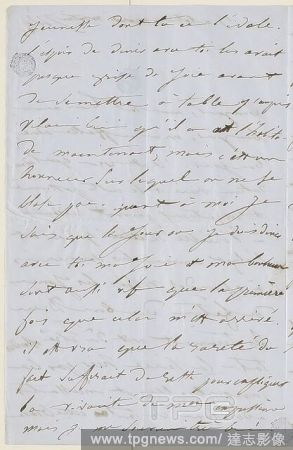 jeunesse dont tu es l'idole.
l'espoir de diner avec toi les avait
presque grisé de joie avant
de se mettre à table
qu'il a l'habitude
de maintenant, mais c'est un
honneur sur lequel on ne se
blase pas. quant à moi je
sais que le jour où je dois diner
avec toi ma joie et mon bonheur
sont aussi vif que la première
fois que cela m'est arrivé.
il est vrai que la rareté du
fait suffirait de reste pour expliquer
la
mais je
TPG
www.tpgnews.com / 達志影像